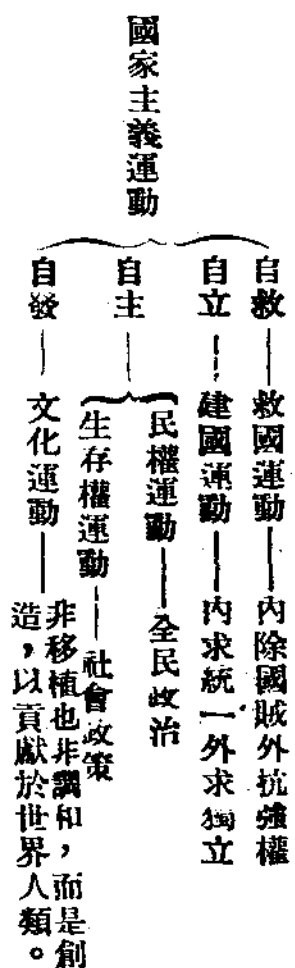 國家主義運動
自救——救國運動——內除國賊外抗強權
自立——建國運動——內求統一外求獨立
自主——民權運動——全民政治
生存權運動——社會政策
自發——文化運動——非移植也非調和，而是創
造，以貢獻於世界人類。